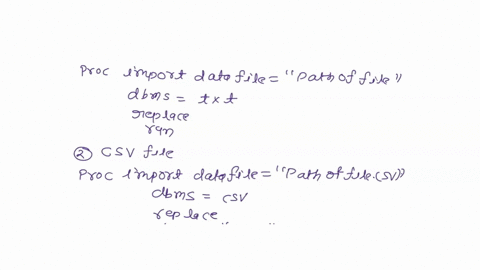 Proc import datafile = "Path of file"
dbms = txt
replace
run
② CSV file
Proc import datafile = "Path of file.csv"
dbms = csv
replace